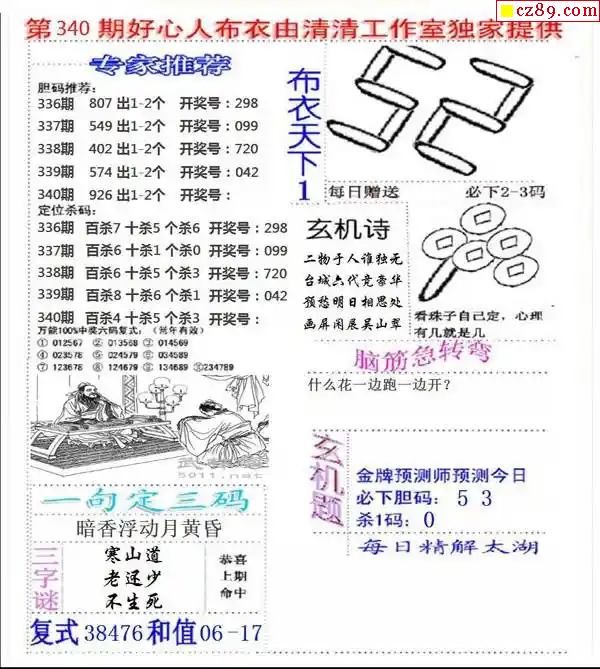 cz89.com
第340期好心人布衣由清清工作室独家提供
专家推荐
胆码推荐:
336期 807 出1-2个 开奖号:298
337期 549 出1-2个 开奖号:099
338期 402 出1-2个 开奖号:720
339期 574 出1-2个 开奖号:042
340期 926 出1-2个 开奖号:
定位杀码:
336期 百杀7 十杀5 个杀6 开奖号:298
337期 百杀6 十杀1 个杀0 开奖号:099
338期 百杀6 十杀5 个杀3 开奖号:720
339期 百杀8 十杀6 个杀1 开奖号:042
340期 百杀4 十杀5 个杀3 开奖号:
万能100%中奖六码复式:(常年有效)
① 012567 ② 013568 ③ 014569
④ 023578 ⑤ 024579 ⑥ 034589
⑦ 123678 ⑧ 124679 ⑨ 134689 ⑩234789
5011.net
一句定三码
暗香浮动月黄昏
三字谜
寒山道
老还少
不生死
恭喜
上期
命中
复式 38476 和值 06-17
布衣天下1
52
每日赠送 必下2-3码
玄机诗
二物于人谁独无
台城六代竞豪华
预愁明日相思处
画屏闲展吴山翠
看珠子自己定,心理
有几就是几
脑筋急转弯
什么花一边跑一边开?
玄机题
金牌预测师预测今日
必下胆码: 5 3
杀1码: 0
每日精解太湖